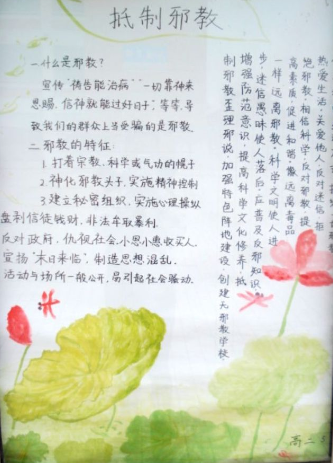 抵制邪教
一.什么是邪教?
宣传“祷告能治病”“一切靠神来
思赐.信神就能过好日子”等等.导
致我们的群众上当受骗的是邪教.
二.邪教的特征:
1.打着宗教、科学或气功的幌子
2.神化邪教头子.实施精神控制
3.建立秘密组织.实施心理操纵
盘剥信徒钱财.非法牟取暴利.
反对政府.仇视社会.小恩小惠收买人.
宣扬“末日来临”.制造思想混乱.
活动与场所一般公开.易引起社会骚动.
热爱生活.关爱他人.反对迷信.拒
绝邪教.相信科学.反对邪教.提
高素质.促进和谐.像远离毒品
一样远离邪教.科学文明使人进
步.迷信愚昧使人落后.应普及反邪知识
增强防范意识.提高科学文化修养.抵
制邪教歪理邪说加强特色阵地建设.创建无邪教学校
高二